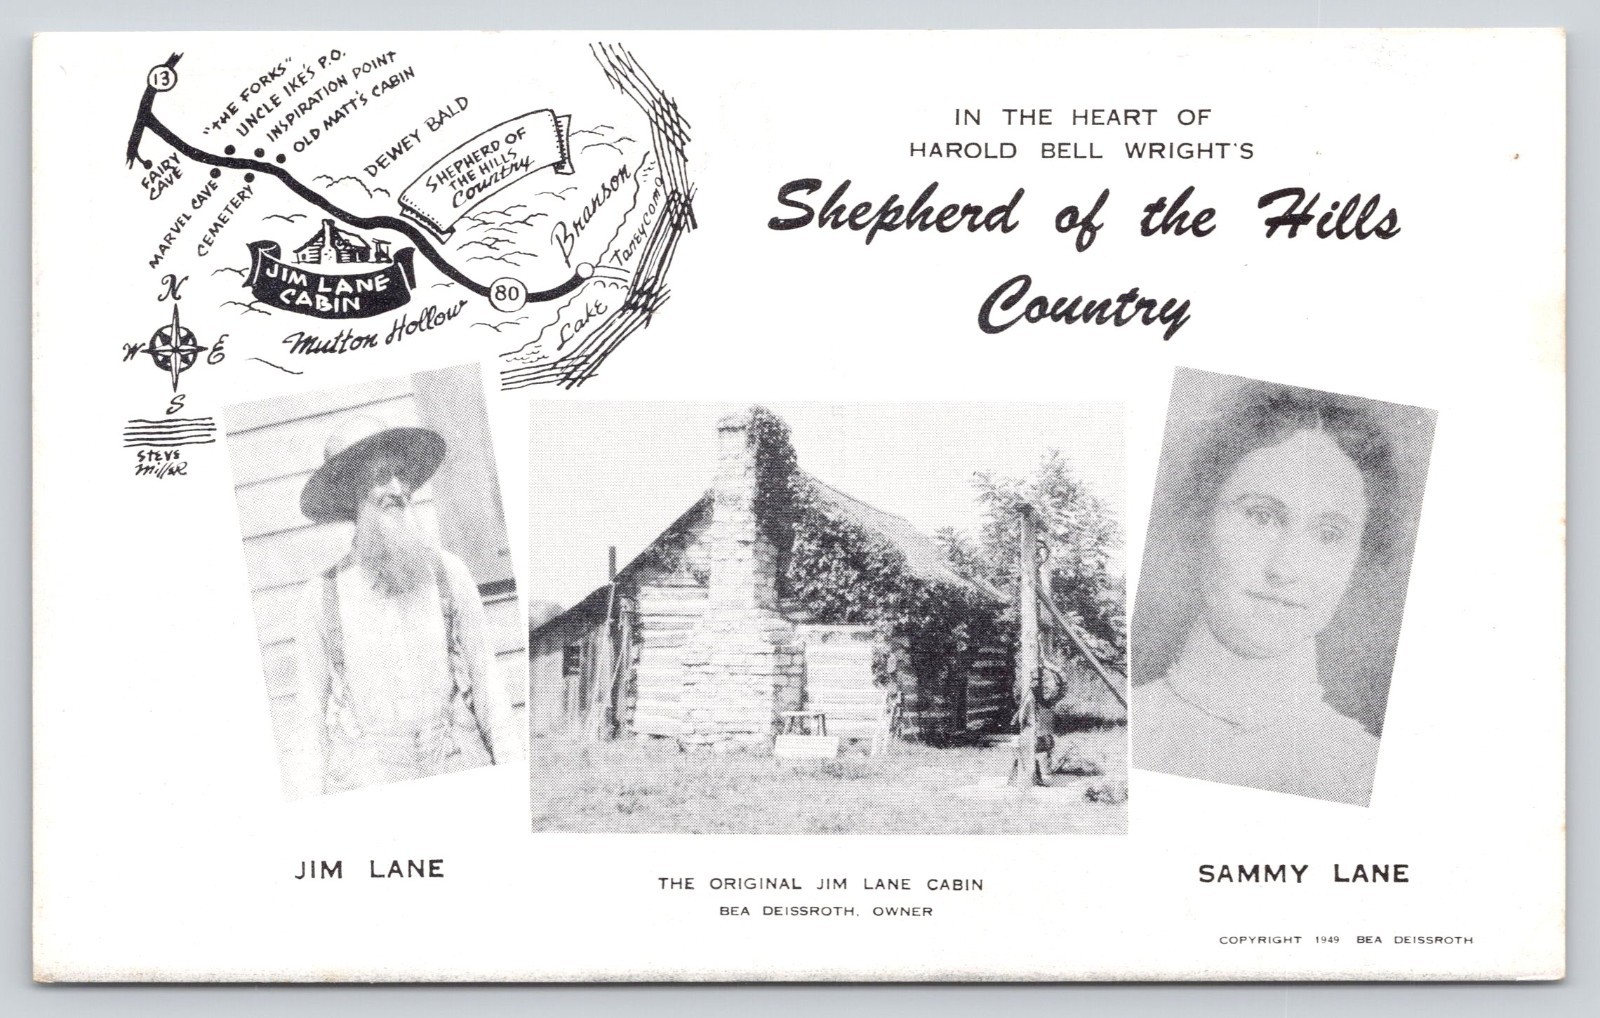 13
"THE FORKS"
UNCLE IKE'S P.O.
INSPIRATION POINT
OLD MATT'S CABIN
DEWEY BALD
SHEPHERD OF
THE HILLS
Country
FAIRY
CAVE
MARVEL CAVE
CEMETERY
JIM LANE
CABIN
Mutton Hollow
80
Branson
Lake
Taneycomo
N
W
E
S
STEVE
MILLER
IN THE HEART OF
HAROLD BELL WRIGHT'S
Shepherd of the Hills
Country
JIM LANE
THE ORIGINAL JIM LANE CABIN
BEA DEISSROTH, OWNER
SAMMY LANE
COPYRIGHT 1949 BEA DEISSROTH